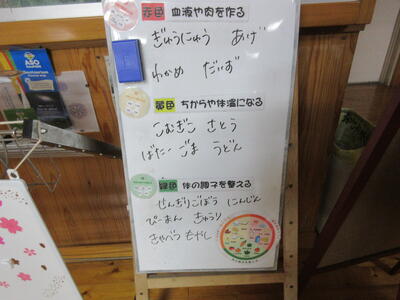 赤色 血液や肉を作る
ぎゅうにゅう あげ
わかめ だいず
黄色 ちからや体温になる
こむぎこ さとう
ばたー ごま うどん
緑色 体の調子を整える
せんぎりごぼう にんじん
ぴーまん きゅうり
きゃべつ もやし
ASO